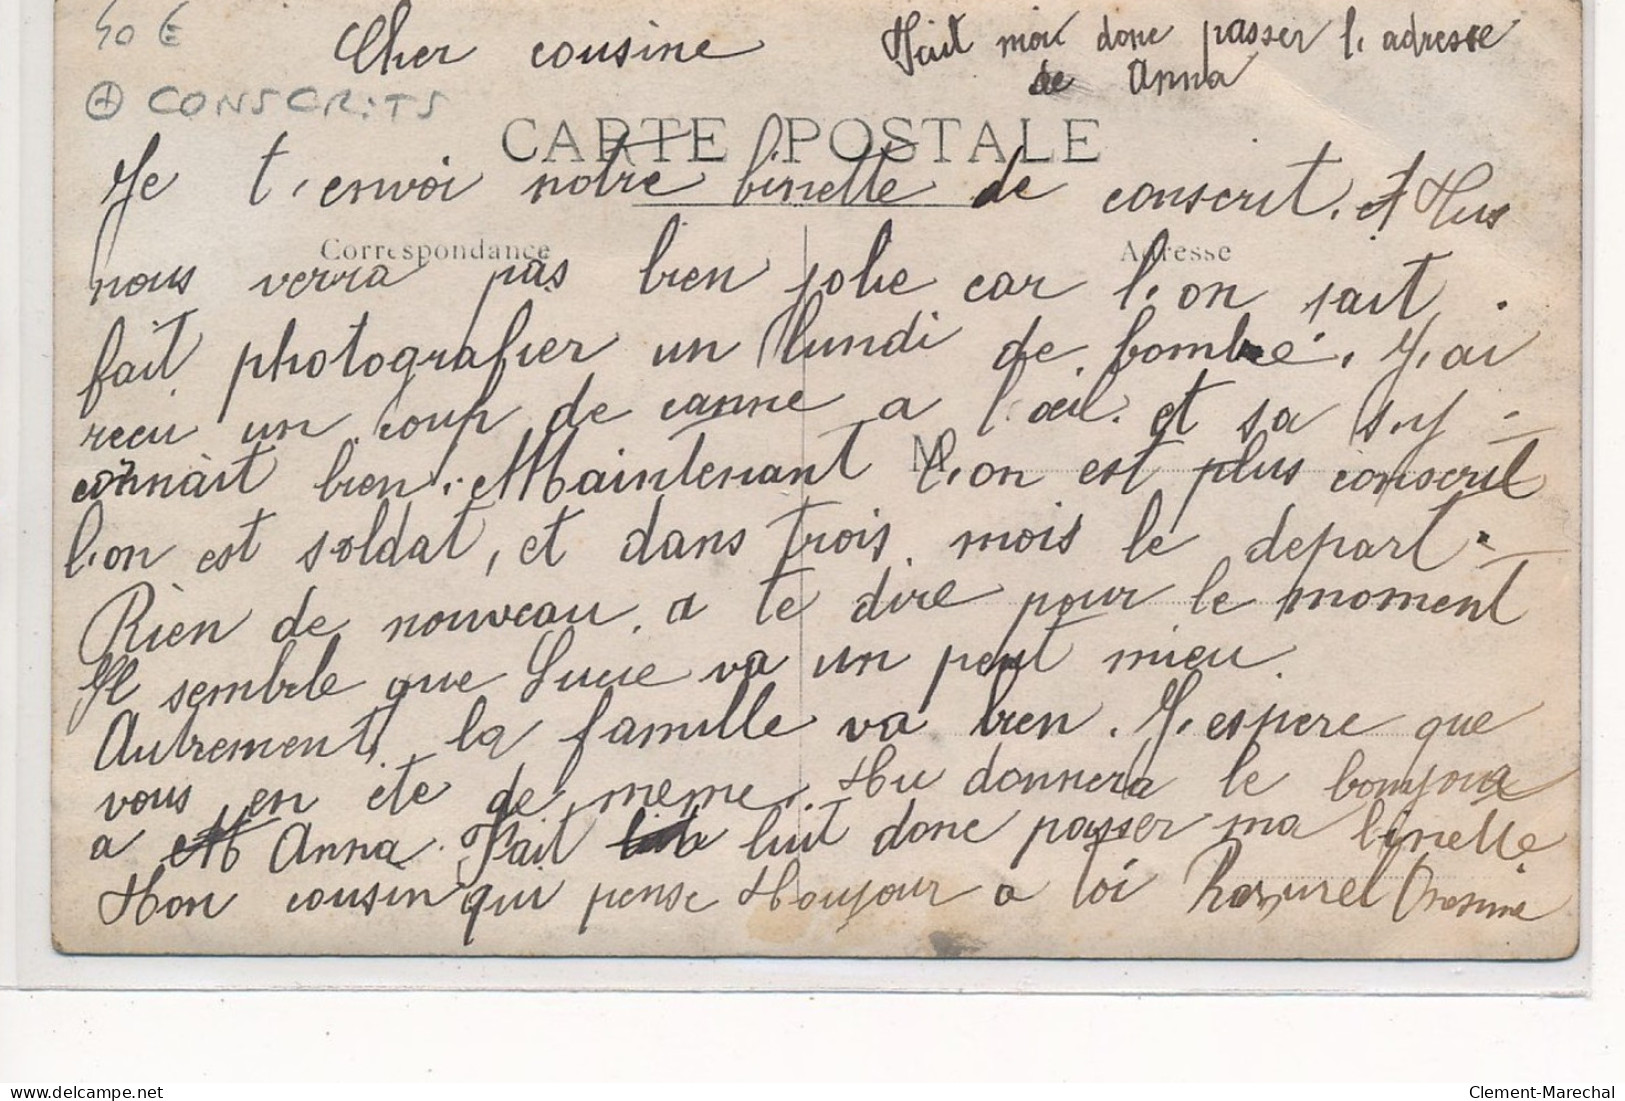 40 €
Cher cousine
Fait moi donc passer l, adresse
de Anna
CONSCRITS
CARTE POSTALE
Je t, envoi notre binette de conscrit. et Tus
Correspondance
Adresse
nous verra pas bien jolie car l, on sait
fait photografier un lundi de bombe. J, ai
recu un coup de canne a l'œil. et sa s, y
connait bien. Maintenant l, on est plus conscrit
M
l, on est soldat, et dans trois mois le depart.
Rien de nouveau a te dire pour le moment
Il semble que Lucie va un peut mieu.
Autrement, la famille va bien. J, espere que
vous en ete de meme. Tu donnera le bonjour
a Anna. Fait luit donc passer ma binette
Ton cousin qui pense Toujour a toi
Clement-Marechal
delcampe.net